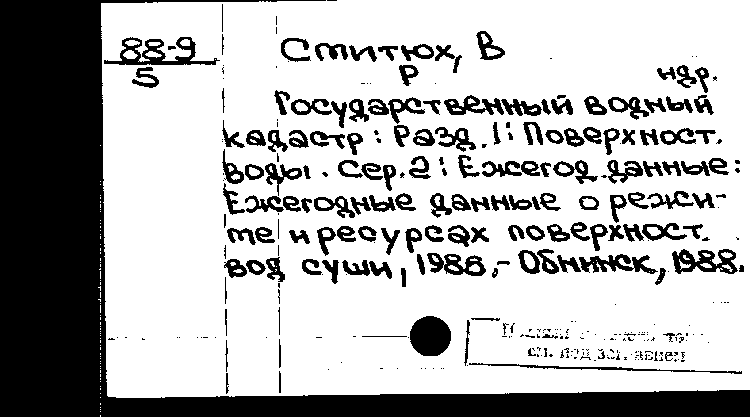 88-9
5
Ститюх, В
р
ндр.
Государственный водный
кадастр: Разд. 1: Поверхност.
воды. Сер. 2: Ежегод. данные:
Ежегодные данные о режи-
ме и ресурсах поверхност.
вод суши, 1986.- Обнинск, 1988.
см. под заглавием